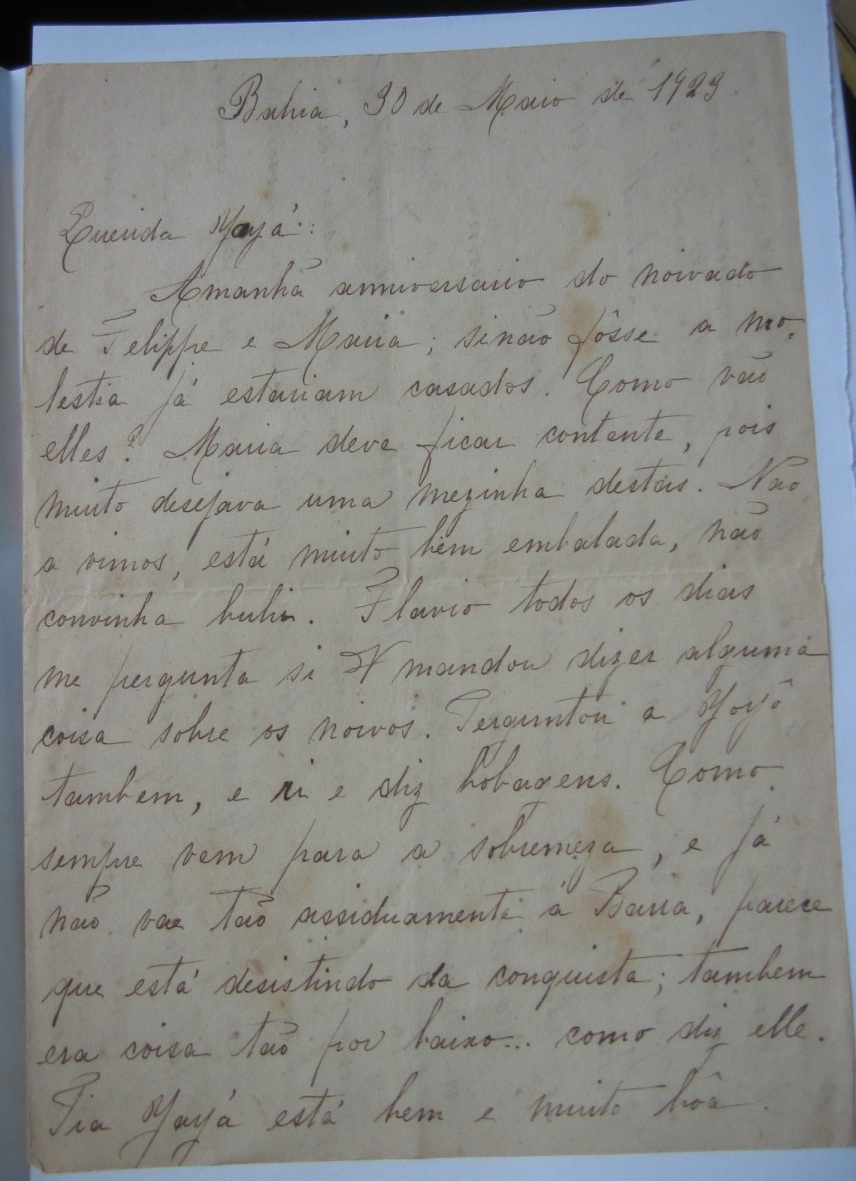 Bahia, 30 de Maio de 1923.
Querida Yayá:
Amanhã anniversario do noivado
de Felippe e Maria; sinão fôsse a mo-
lestia já estariam casados. Como vão
elles? Maria deve ficar contente, pois
muito desejava uma mezinha destas. Não
a vimos, está muito bem embalada, não
convinha bulir. Flavio todos os dias
me pergunta si V mandou dizer alguma
coisa sobre os noivos. Perguntou a Yoyô
tambem, e ri e diz bobagens. Como
sempre vem para a sobremeza, e já
não vae tão assiduamente á Barra, parece
que está desistindo da conquista; tambem
era coisa tão por baixo... como diz elle.
Tia Yayá está bem e muito bôa.